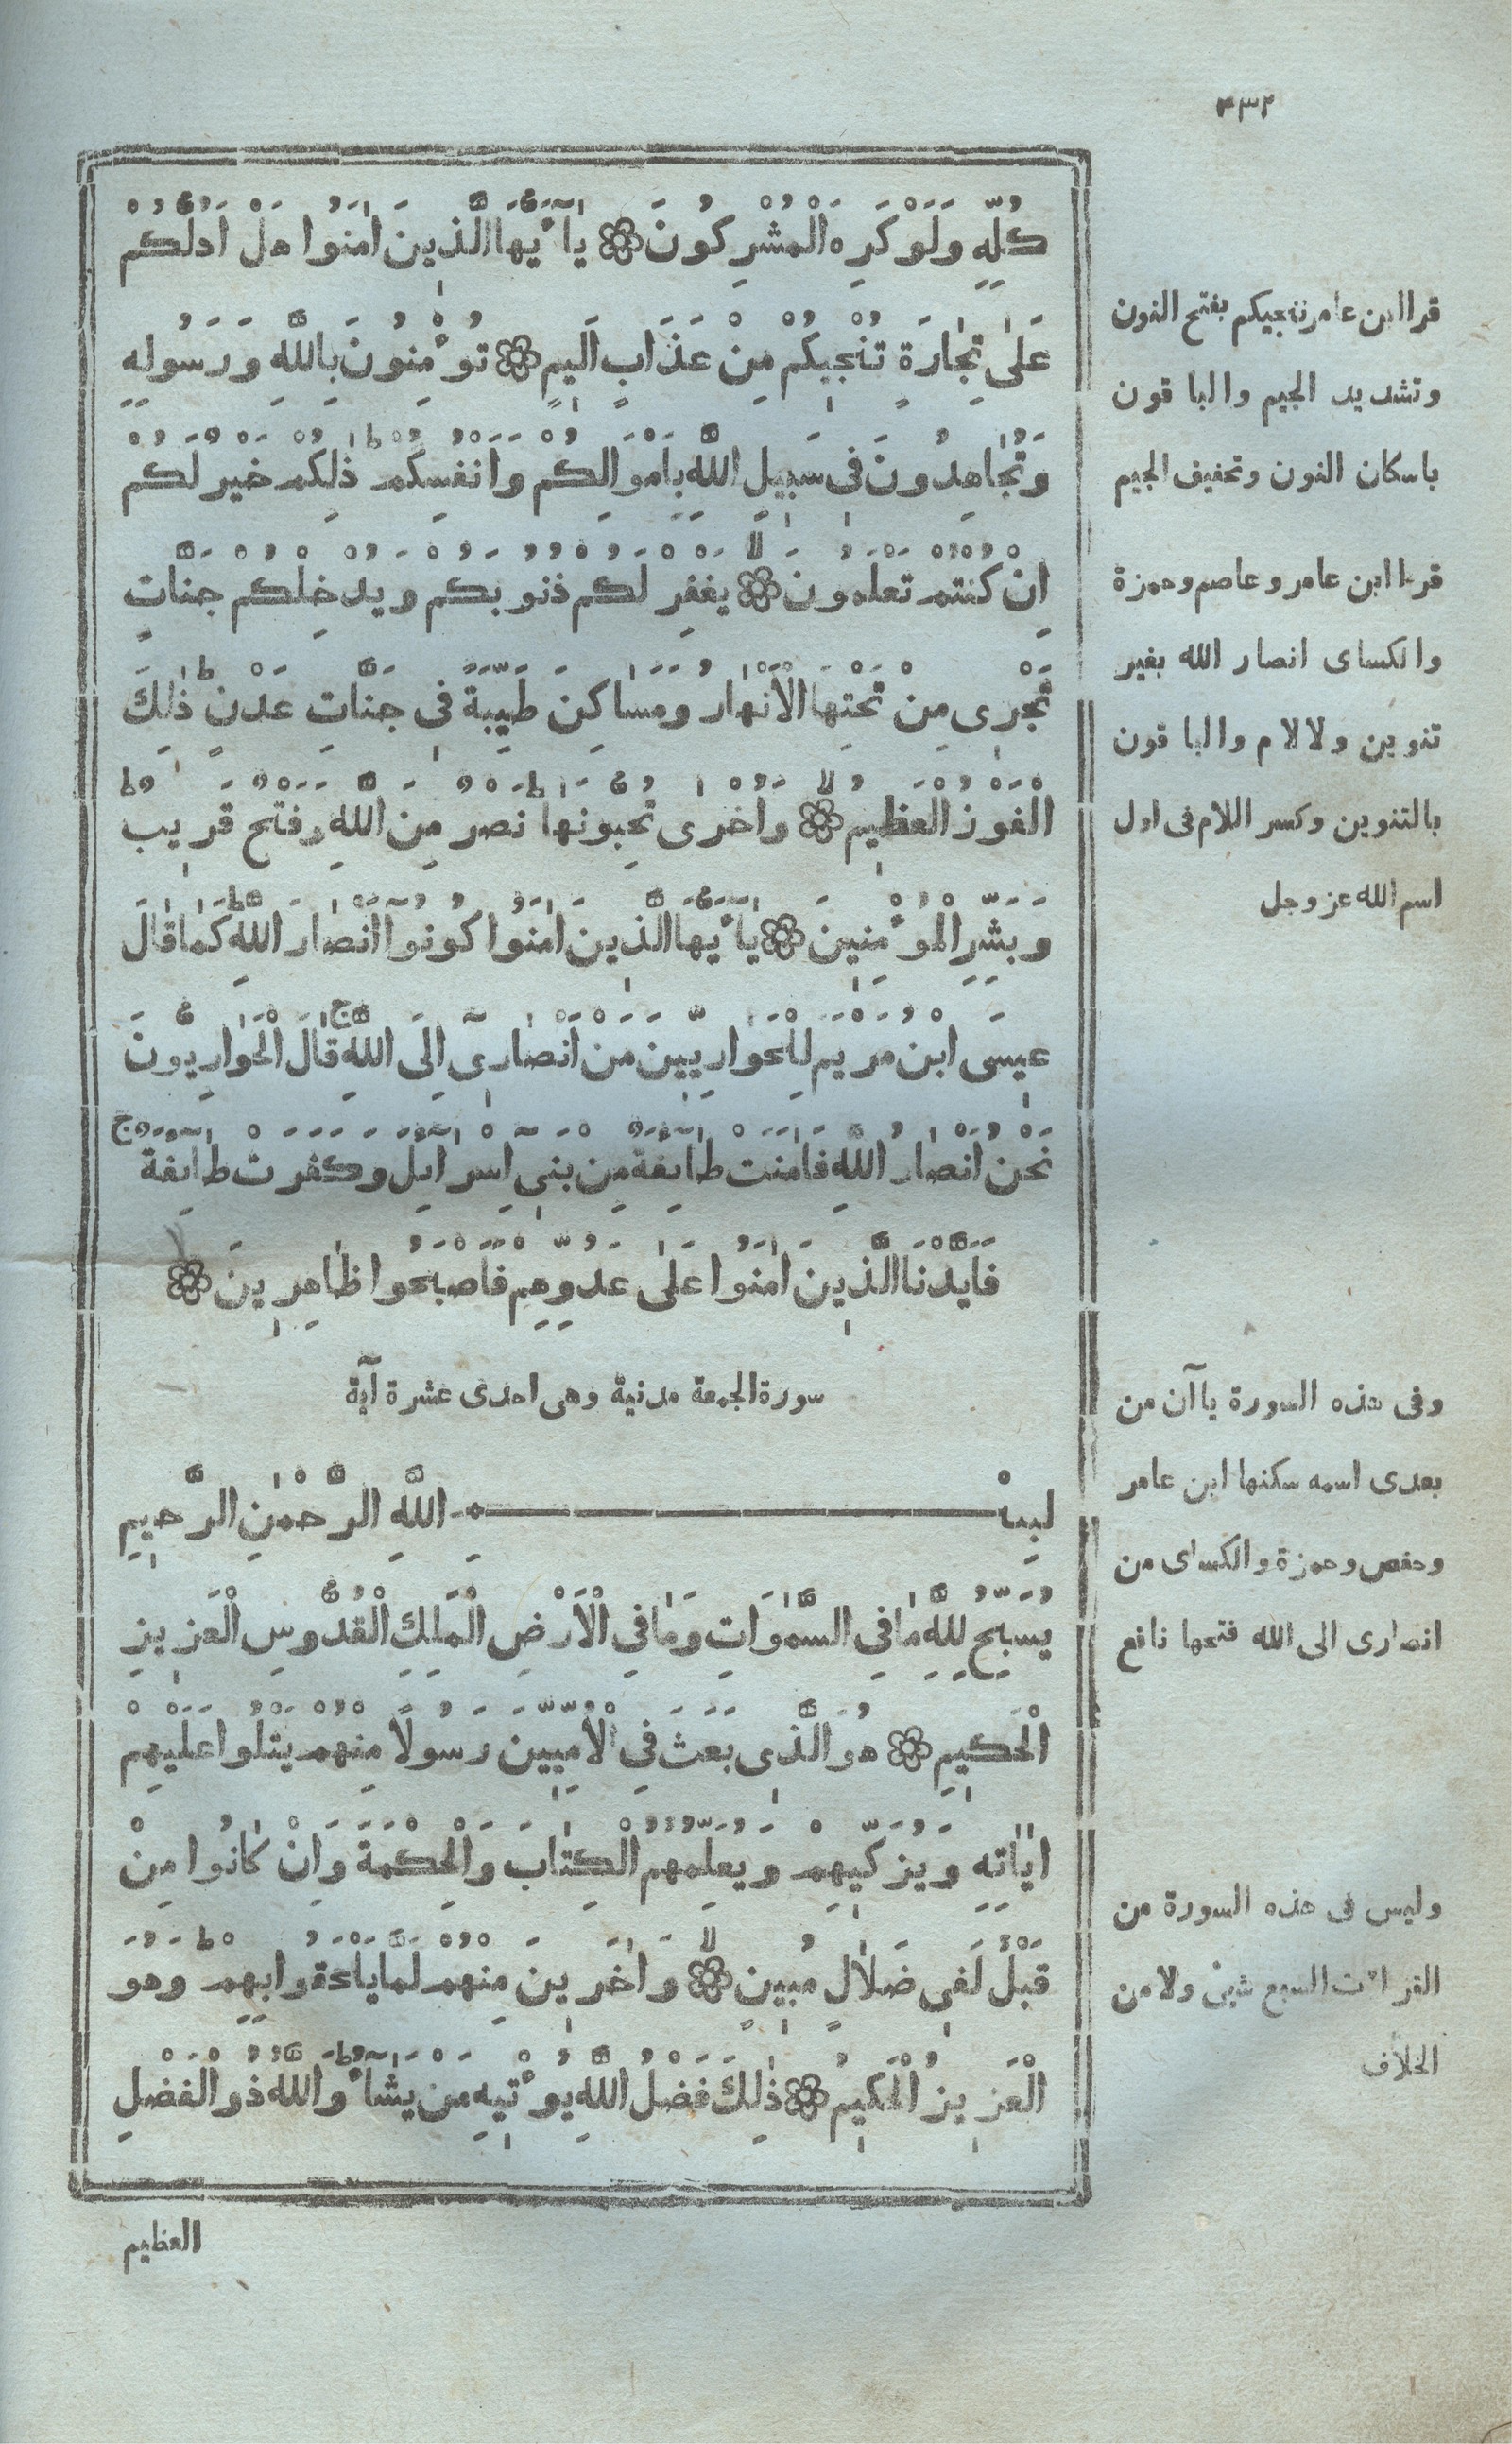 ۴۳۲
كُلِّهِ وَلَوْ كَرِهَ الْمُشْرِكُونَ ۞ يَآ أَيُّهَا الَّذِينَ اٰمَنُوا هَلْ اَدُلُّكُمْ
عَلٰى تِجَارَةٍ تُنْجِيكُمْ مِنْ عَذَابٍ اَلِيمٍ ۞ تُؤْمِنُونَ بِاللَّهِ وَرَسُولِهِ
وَتُجَاهِدُونَ فِى سَبِيلِ اللَّهِ بِاَمْوَالِكُمْ وَاَنْفُسِكُمْ ط ذٰلِكُمْ خَيْرٌ لَكُمْ
اِنْ كُنْتُمْ تَعْلَمُونَ لا ۞ يَغْفِرْ لَكُمْ ذُنُوبَكُمْ وَيُدْخِلْكُمْ جَنَّاتٍ
تَجْرِى مِنْ تَحْتِهَا الْاَنْهَارُ وَمَسَاكِنَ طَيِّبَةً فِى جَنَّاتِ عَدْنٍ ط ذٰلِكَ
الْفَوْزُ الْعَظِيمُ لا ۞ وَاُخْرٰى تُحِبُّونَهَا ط نَصْرٌ مِنَ اللَّهِ وَفَتْحٌ قَرِيبٌ ط
وَبَشِّرِ الْمُؤْمِنِينَ ۞ يَآ أَيُّهَا الَّذِينَ اٰمَنُوا كُونُوآ اَنْصَارَ اللَّهِ ط كَمَا قَالَ
عِيسَى ابْنُ مَرْيَمَ لِلْحَوَارِيِّينَ مَنْ اَنْصَارِىٓ اِلَى اللَّهِ ج قَالَ الْحَوَارِيُّونَ
نَحْنُ اَنْصَارُ اللَّهِ فَاٰمَنَتْ طَآئِفَةٌ مِنْ بَنِىٓ اِسْرَآئِلَ وَكَفَرَتْ طَآئِفَةٌ ج
فَاَيَّدْنَا الَّذِينَ اٰمَنُوا عَلٰى عَدُوِّهِمْ فَاَصْبَحُوا ظَاهِرِينَ ۞
سورة الجمعة مدنية وهى احدى عشرة آية
بِسْمِ اللَّهِ الرَّحْمٰنِ الرَّحِيمِ
يُسَبِّحُ لِلَّهِ مَا فِي السَّمٰوَاتِ وَمَا فِي الْاَرْضِ الْمَلِكِ الْقُدُّوسِ الْعَزِيزِ
الْحَكِيمِ ۞ هُوَ الَّذِى بَعَثَ فِى الْاُمِّيِّينَ رَسُولًا مِنْهُمْ يَتْلُوا عَلَيْهِمْ
اٰيَاتِهِ وَيُزَكِّيهِمْ وَيُعَلِّمُهُمُ الْكِتَابَ وَالْحِكْمَةَ وَاِنْ كَانُوا مِنْ
قَبْلُ لَفِى ضَلَالٍ مُبِينٍ لا ۞ وَاٰخَرِينَ مِنْهُمْ لَمَّا يَلْحَقُوا بِهِمْ ط وَهُوَ
الْعَزِيزُ الْحَكِيمُ ۞ ذٰلِكَ فَضْلُ اللَّهِ يُؤْتِيهِ مَنْ يَشَآءُ ط وَاللَّهُ ذُو الْفَضْلِ
العظيم
قرا ابن عامر تنجيكم بفتح النون
وتشديد الجيم والباقون
باسكان النون وتخفيف الجيم
قرا ابن عامر وعاصم وحمزة
والكساى انصار الله بغير
تنوين ولا لام والباقون
بالتنوين وكسر اللام فى اول
اسم الله عز وجل
وفى هذه السورة ياآن من
بعدى اسمه سكنها ابن عامر
وحفص وحمزة والكساى من
انصارى الى الله فتحها نافع
وليس فى هذه السورة من
القراءت السبع شىء ولا من
الخلاف